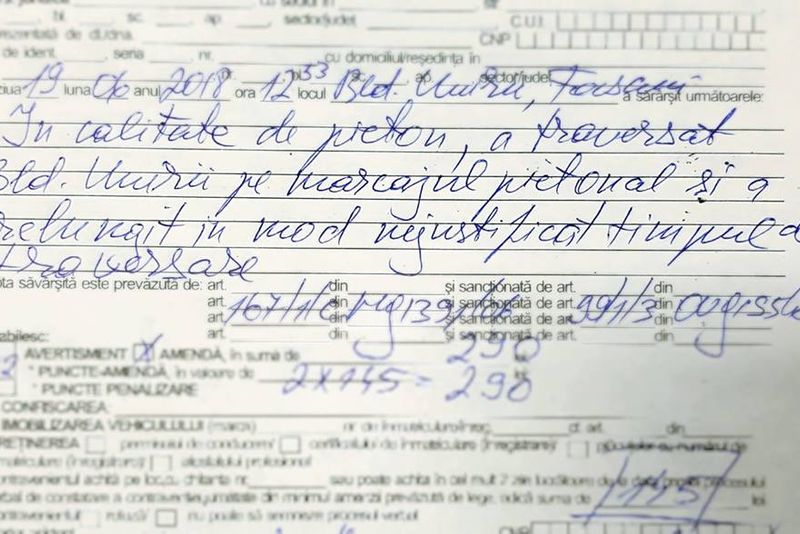 bl. sc. ap. sector/judeţ C.U.I.
prezentată de dl./dna. CNP
de ident. seria nr. cu domiciliul/reşedinţa în
ziua 19 luna 06 anul 2018 ora 12 33 locul Bld. Unirii, Focsani a săvârşit următoarele:
In calitate de pieton, a traversat
Bld. Unirii pe marcajul pietonal si a
prelungit in mod nejustificat timpul de
traversare
Fapta săvârşită este prevăzută de: art. din şi sancţionată de art. din
art. 167/1/ din şi sancţionată de art. 99/1/3 din
art. din şi sancţionată de art. din
AVERTISMENT X AMENDĂ, în sumă de 290 lei
* PUNCTE-AMENDĂ, în valoare de 2x145 = 290 lei
* PUNCTE PENALIZARE
CONFISCAREA:
IMOBILIZAREA VEHICULULUI (marca) nr. de înmatriculare/înreg. cf. art. din
REŢINEREA permisului de conducere/ certificatului de înmatriculare (înregistrare)/ plăcuţelor cu numărul de
înmatriculare (înregistrare)/ atestatului profesional
Contravenientul achită pe loc, cu chitanţa nr. sau poate achita în cel mult 2 zile lucrătoare de la data primirii procesului
verbal de constatare a contravenţiei, jumătate din minimul amenzii prevăzută de lege, adică suma de /145/ lei
Contravenientul refuză/ nu poate să semneze procesul verbal
CNP